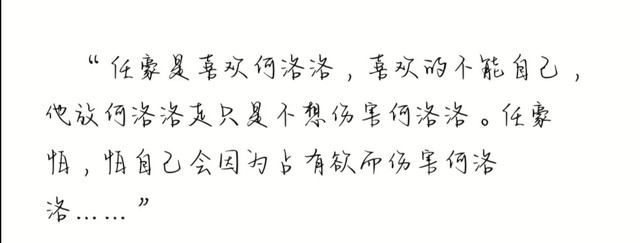 “任豪是喜欢何洛洛，喜欢的不能自己，
他放何洛洛走只是不想伤害何洛洛。任豪
怕，怕自己会因为占有欲而伤害何洛
洛……”